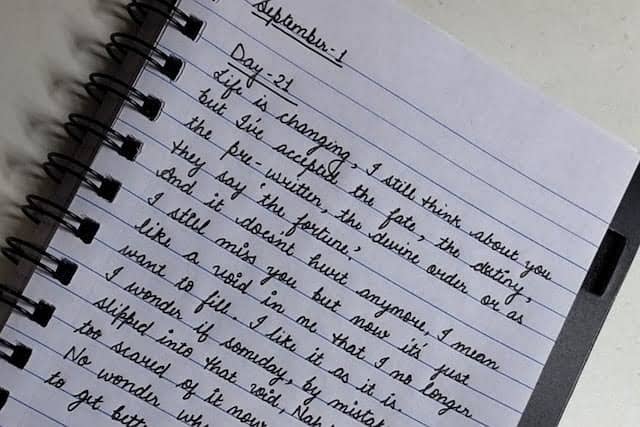 September-1
Day-21
Life is changing, I still think about you
but I've accepted the fate, the destiny,
the pre-written, the devine order or as
they say 'the fortune'.
And it doesnt hurt anymore, I mean
I still miss you but now it's just
like a void in me that I no longer
want to fill. I like it as it is.
I wonder if someday, by mistak
slipped into that void, Nah
too scared of it now
No wonder wh
to get bett